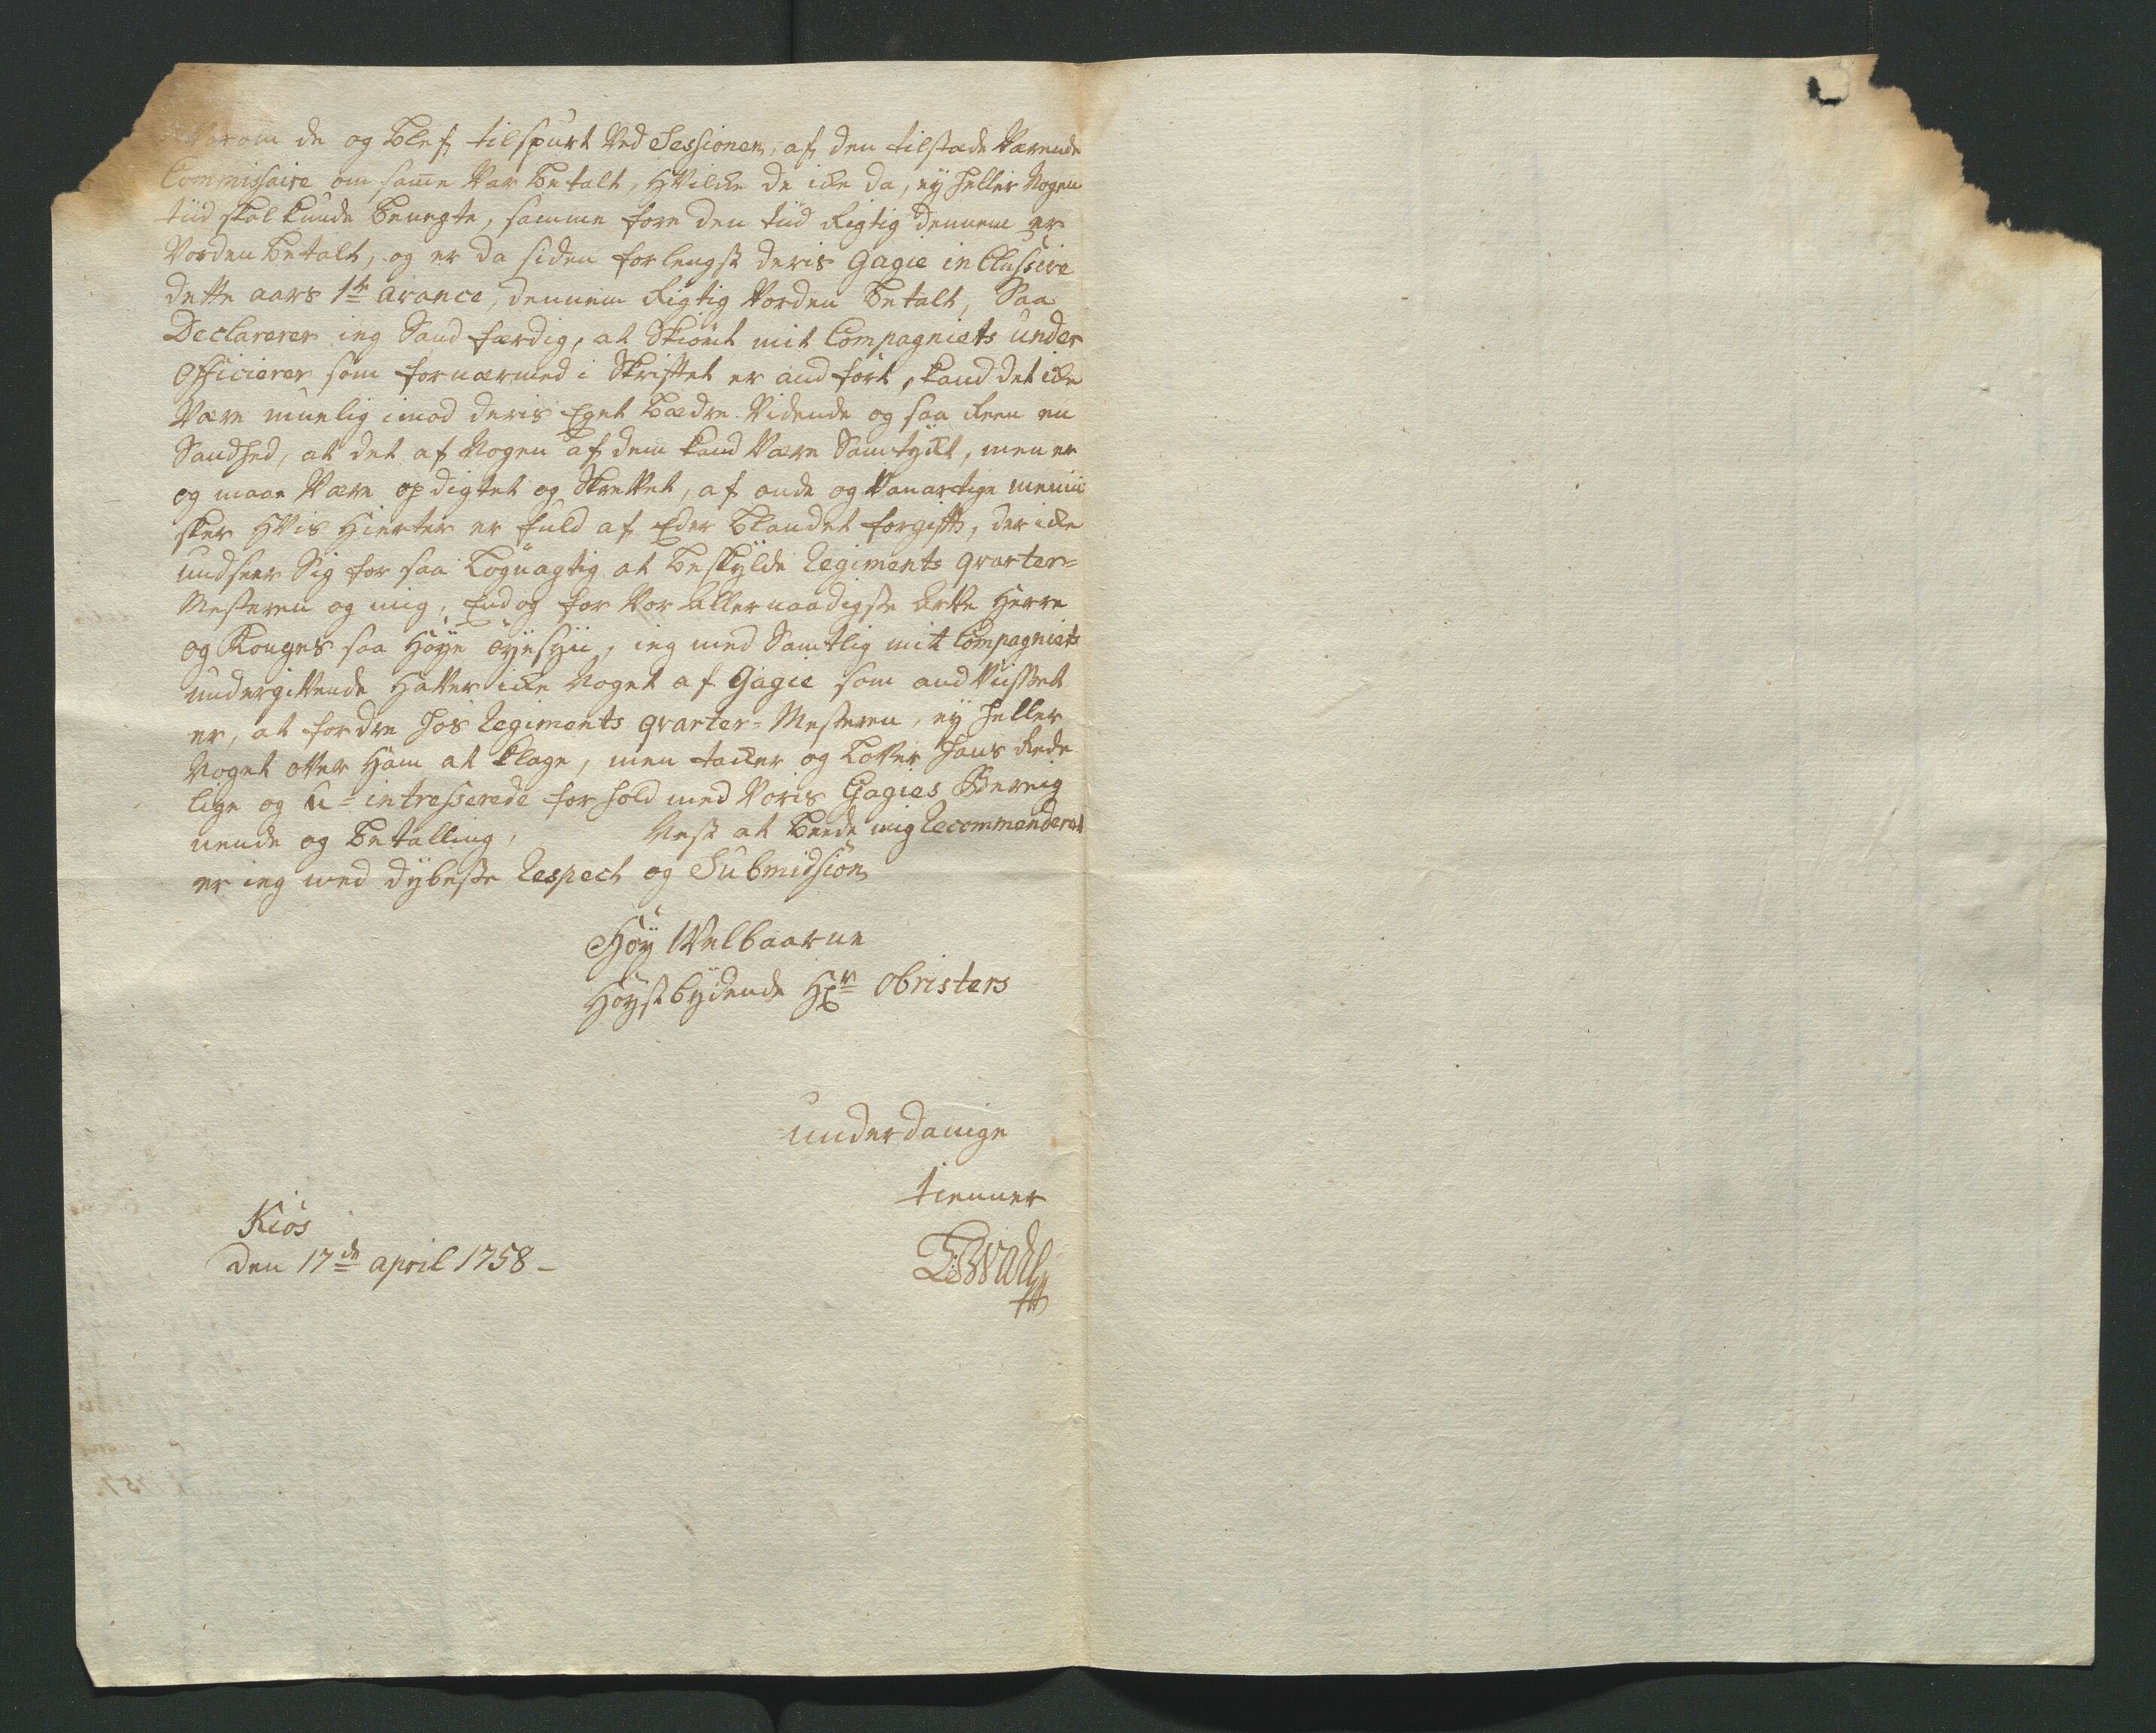 Hvorom de og blef tilspurt ved Sessionen, af den tilstæde værende
Commissaire om samme var betalt, hvilke de icke da, eÿ heller nogen
tiid skal kunde benegte, samme fore den tiid rigtig dennem er
vorden betalt, og er da siden forlengst deris Gagie inclussive
dette aars 1te avance, dennem rigtig vorden betalt, Saa
Declarerer ieg Sandfærdig, at Skiönt mit Compagniets under
Officierer som fornærmed i Skriftet er andfört, kand det icke
være muelig imod deris Eget bædre Vidende og saa Reen en
Sandhed, at det af Nogen af dem kand være Samtÿckt, men er
og maae være opdigtet og Skrevet, af onde og vanartige menni
sker hvis Hierter er fuld af Eder blandet forgift, der icke
undseer Sig for saa lögnagtig at beskÿlde Regiments qvarter=
Mesteren og mig, End og for Vor allernaadigste Arve Herre
og Konges saa Höÿe öÿesÿn, ieg med Samtlig mit Compagniets
undergivende haver icke Noget af Gagie som andviisset
er, at fordre hos Regiments qvarter=Mesteren, eÿ heller
Noget over Ham at klage, men tacker og lover hans Rede
lige og U=intresserede forhold med Voris Gagies
nende og betalling, Nest at beede mig Recommenderet
er ieg med dÿbeste Respect og Submidsion
Höÿ Welbaarne
Höÿstbÿdende Hr Obristers
underdanige
tienner
Kiös
den 17de april 1758